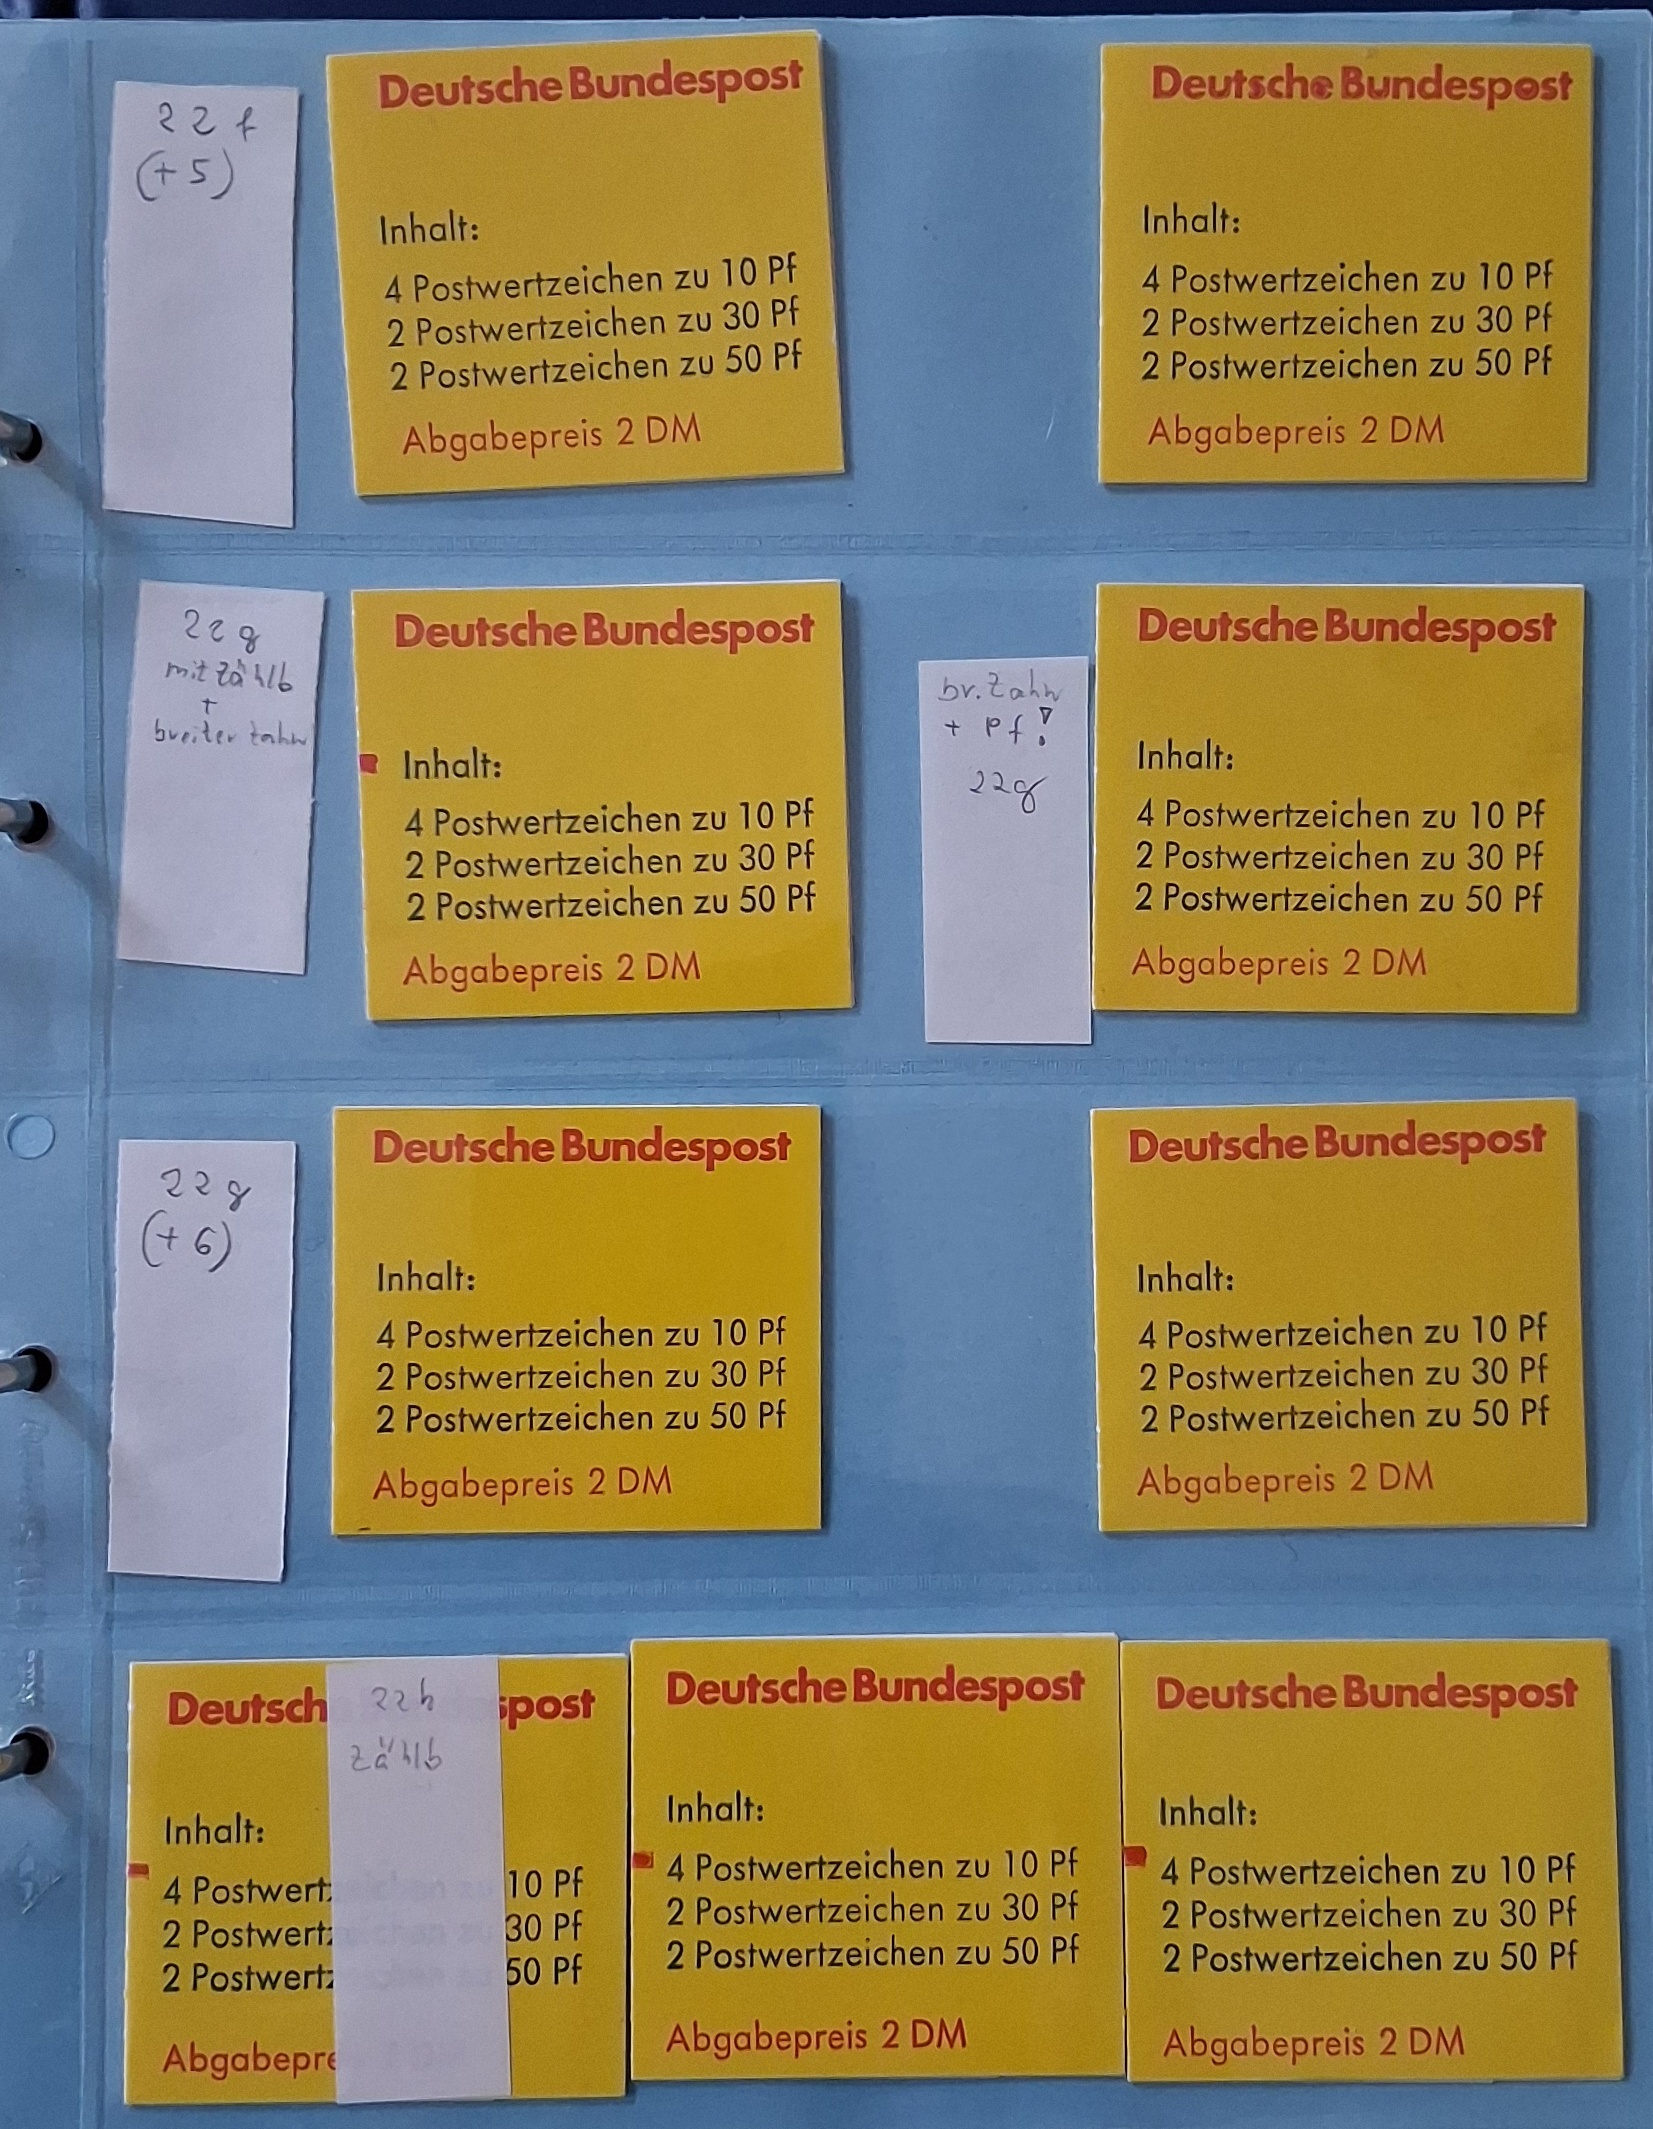 22 f
(+5)
Deutsche Bundespost
Inhalt:
4 Postwertzeichen zu 10 Pf
2 Postwertzeichen zu 30 Pf
2 Postwertzeichen zu 50 Pf
Abgabepreis 2 DM
Deutsche Bundespost
Inhalt:
4 Postwertzeichen zu 10 Pf
2 Postwertzeichen zu 30 Pf
2 Postwertzeichen zu 50 Pf
Abgabepreis 2 DM
22 g
mit Zählb
+
breiter Zahn
Deutsche Bundespost
Inhalt:
4 Postwertzeichen zu 10 Pf
2 Postwertzeichen zu 30 Pf
2 Postwertzeichen zu 50 Pf
Abgabepreis 2 DM
br. Zahn
+ Pf!
22g
Deutsche Bundespost
Inhalt:
4 Postwertzeichen zu 10 Pf
2 Postwertzeichen zu 30 Pf
2 Postwertzeichen zu 50 Pf
Abgabepreis 2 DM
22 g
(+6)
Deutsche Bundespost
Inhalt:
4 Postwertzeichen zu 10 Pf
2 Postwertzeichen zu 30 Pf
2 Postwertzeichen zu 50 Pf
Abgabepreis 2 DM
Deutsche Bundespost
Inhalt:
4 Postwertzeichen zu 10 Pf
2 Postwertzeichen zu 30 Pf
2 Postwertzeichen zu 50 Pf
Abgabepreis 2 DM
Deutsch spost
Inhalt:
4 Postwertz 10 Pf
2 Postwertz 30 Pf
2 Postwertz 50 Pf
Abgabepre
22h
Zählb
Deutsche Bundespost
Inhalt:
4 Postwertzeichen zu 10 Pf
2 Postwertzeichen zu 30 Pf
2 Postwertzeichen zu 50 Pf
Abgabepreis 2 DM
Deutsche Bundespost
Inhalt:
4 Postwertzeichen zu 10 Pf
2 Postwertzeichen zu 30 Pf
2 Postwertzeichen zu 50 Pf
Abgabepreis 2 DM